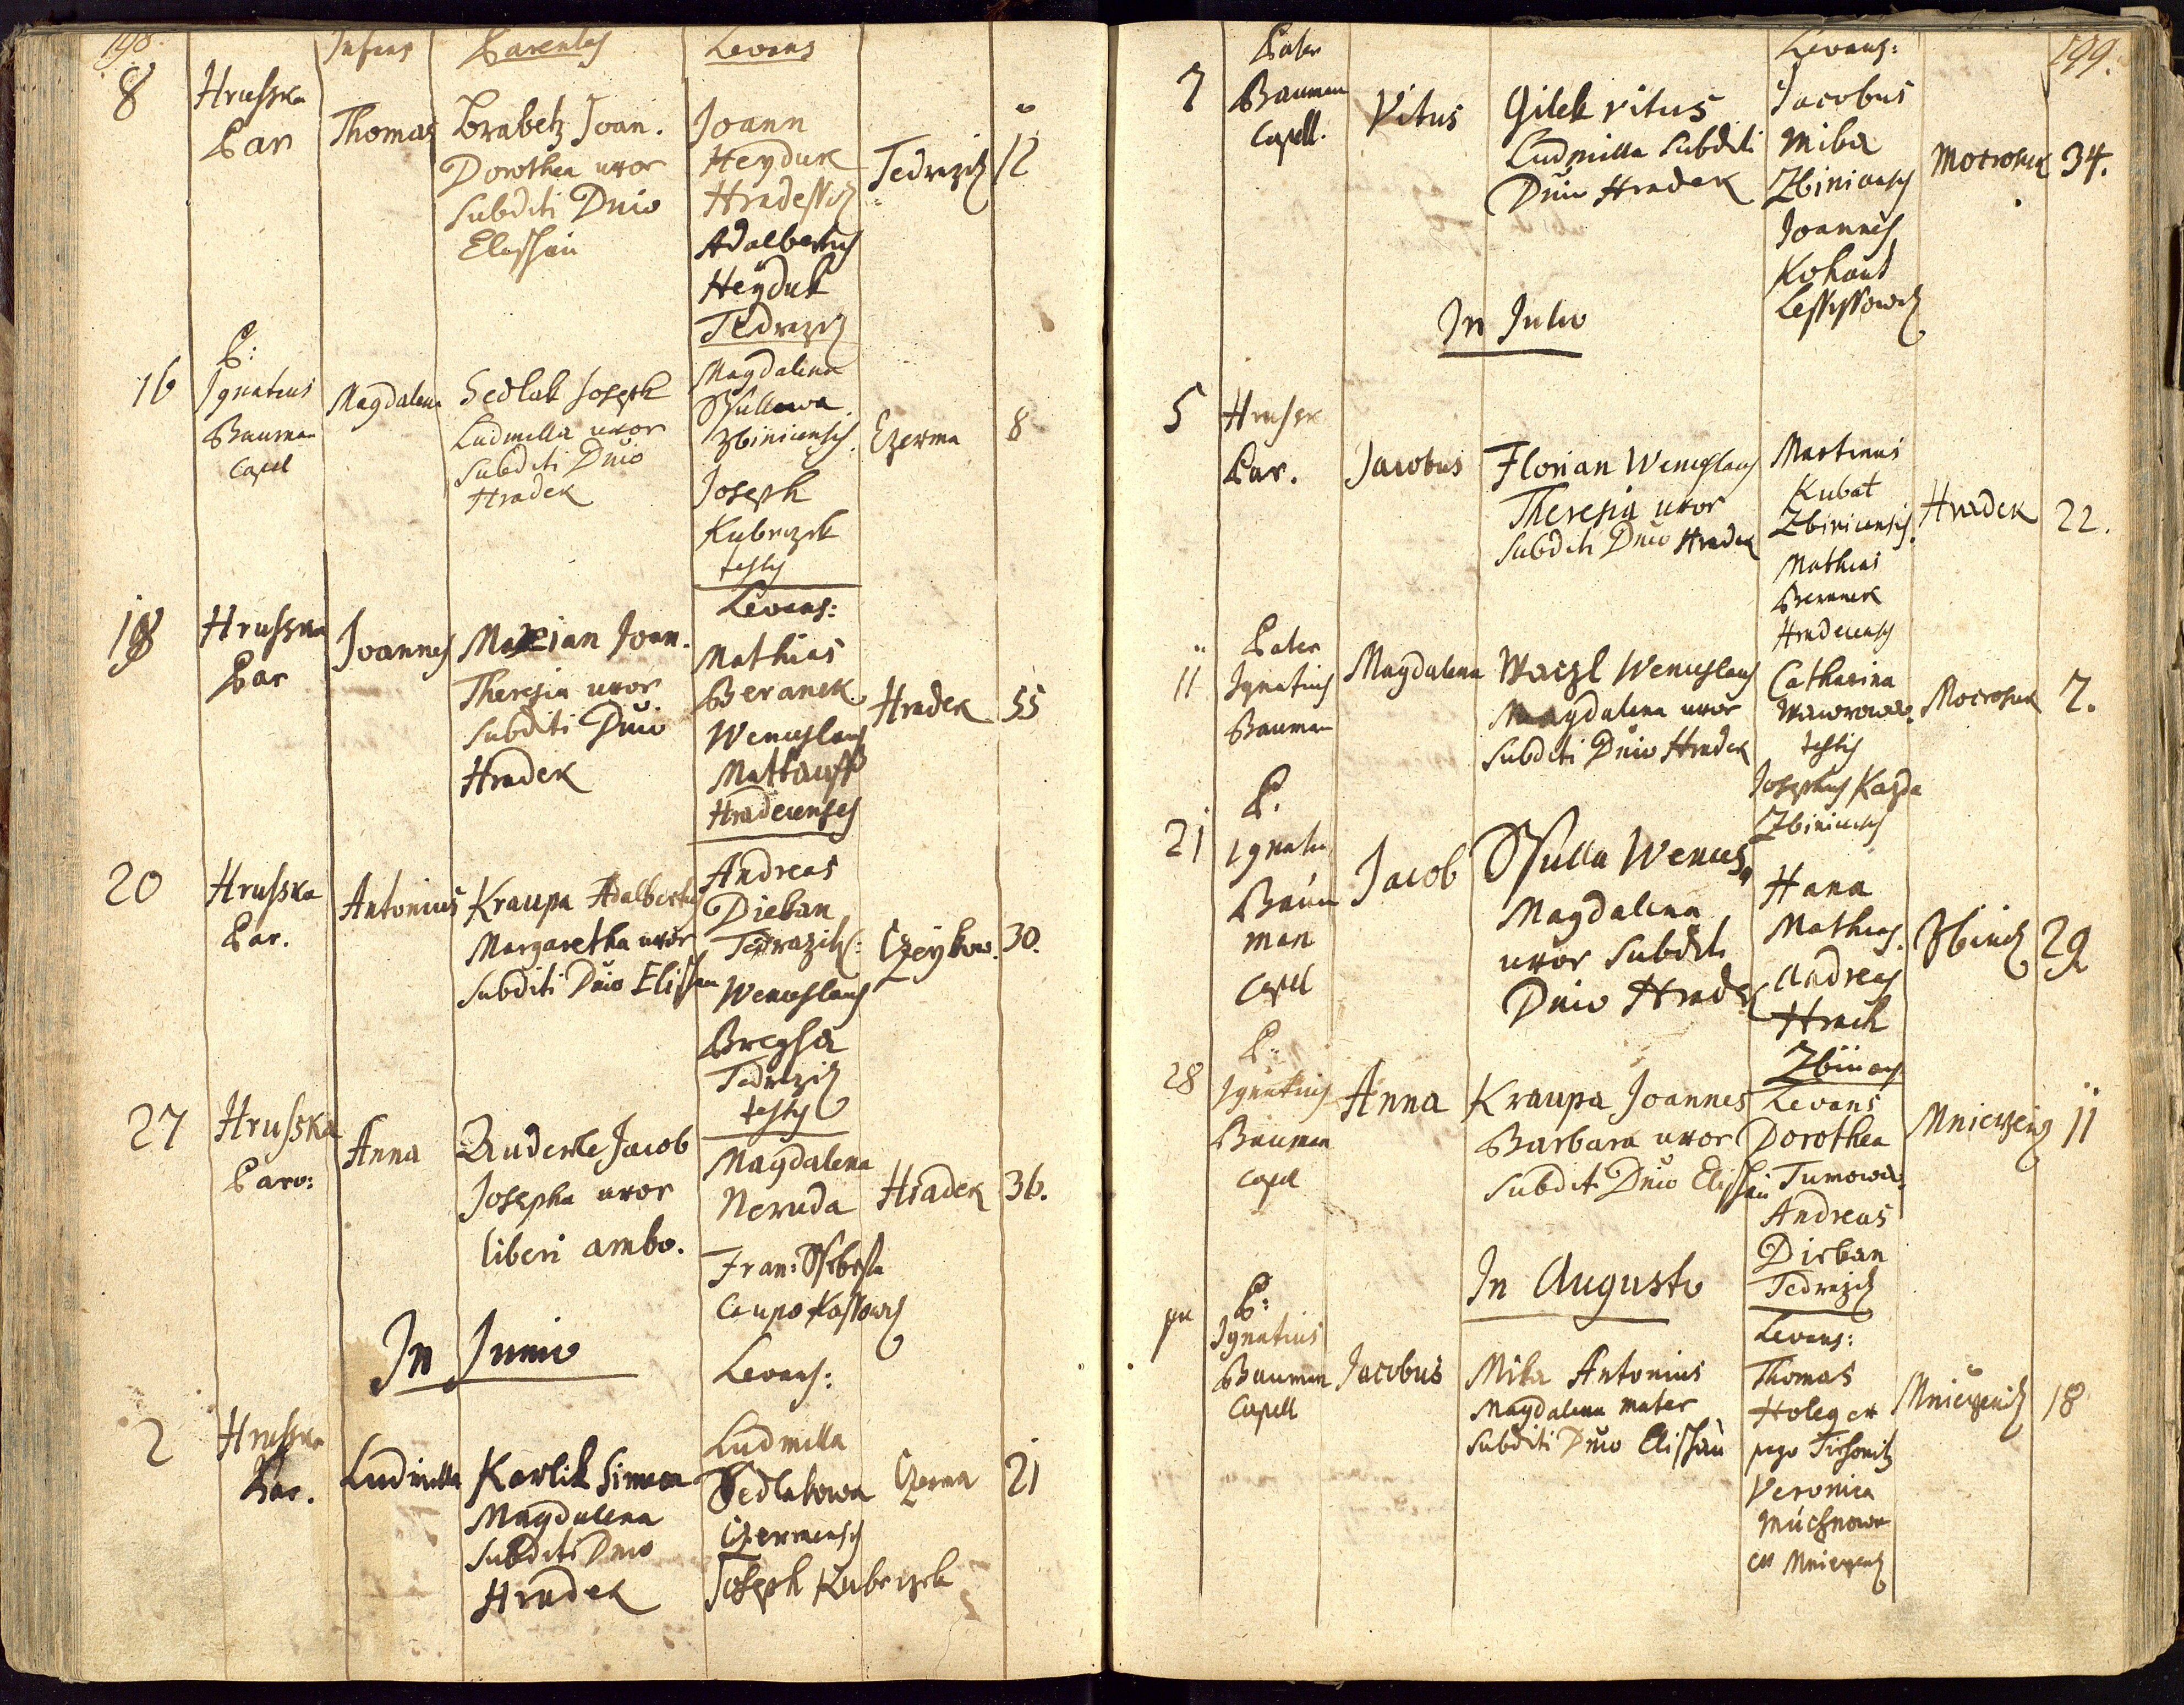 198
Infans Parentes Levans
8 Hrusska Par
Thomas
Brabetz Joan.
Dorothea uxor
Subditi Dnio
Elisschau
Joann
Heyduk
Hradessitz
Adalbertus
Heyduk
Tedrazitz
Tedrazitz
12
16
P:
Ignatius
Bauman
Capel
Magdalena
Sedlak Joseph
Ludmilla uxor
Subditi Dnio
Hradek
Magdalena
Ssullowa
Zbinicensis
Joseph
Kubrzek
testis
Czerma
8
18 Hrusska
Par
Joannes
Marian Joan.
Theresia uxor
Subditi Dnio
Hradek
Levans:
Mathias
Beranek
Wenceslaus
Mattauss
Hradecenses
Hradek
55
20
Hrusska
Par.
Antonius
Kraupa Adalbertus
Margaretha uxor
Subditi Dnio Elisschau
Andreas
Dieban
Tedrazitz:
Wenceslaus
Bregha
Tedrazitz
testis
Czeykow.
30.
27
Hrusska
Paro:
Anna
Anderle Jacob
Josepha uxor
liberi ambo.
Magdalena
Neruda
Fran: Ssebesta
Caupo Kassowitz
Hradek
36.
In Junio
Levans:
2
Hrusska
Par.
Ludmilla
Karlik Simeon
Magdalena
Subditi Dnio
Hradek
Ludmilla
Sedlakowa
Czermensis
Joseph Kubrzek
Czerma
21
199.
7
Pater
Bauman
Capell.
Vitus
Gilek Vitus
Ludmilla Subditi
Dnio Hradek
Levans:
Jacobus
Mika
Zbinicensis
Joannes
Kohaut
Lessissowitz
Mocrosuk
34.
In Julio
5
Hrussk
Par.
Jacobus
Florian Wenceslaus
Theresia uxor
Subditi Dnio Hradek
Martinus
Kubat
Zbinicensis
Mathias
Beranek
Hradecensis
Hradek
22.
11
Pater
Ignatius
Bauman
Magdalena
Waczl Wenceslaus
Magdalena uxor
Subditi Dnio Hradek
Catharina
Wawrowa.
testis
Josephus Kazda
Zbinicensis
Mocrosuk
7.
21
P.
Ignatiu
Baum
man
Capel
Jacob
Ssulla Wences,
Magdalena
uxor Subditi
Dnio Hradek
Hana
Mathias.
Andreas
Hrach
Zbinicens
Zbinitz
29
28
P:
Ignatius
Bauman
Capel
Anna
Kraupa Joannes
Barbara uxor
Subditi Dnio Elisschau
Levans
Dorothea
Tumowa.
Andreas
Dieban
Tedrazitz
Mnieczenitz
11
In Augusto
P:
Ignatius
Bauman
Capell
Jacobus
Mika Antonius
Magdalena mater
Subditi Dnio Elisschau
Levans:
Thomas
Holeg ex
pago Tieschonitz
Veronica
Muchnowa
ex Mnieczenitz
Mnieczenitz
18